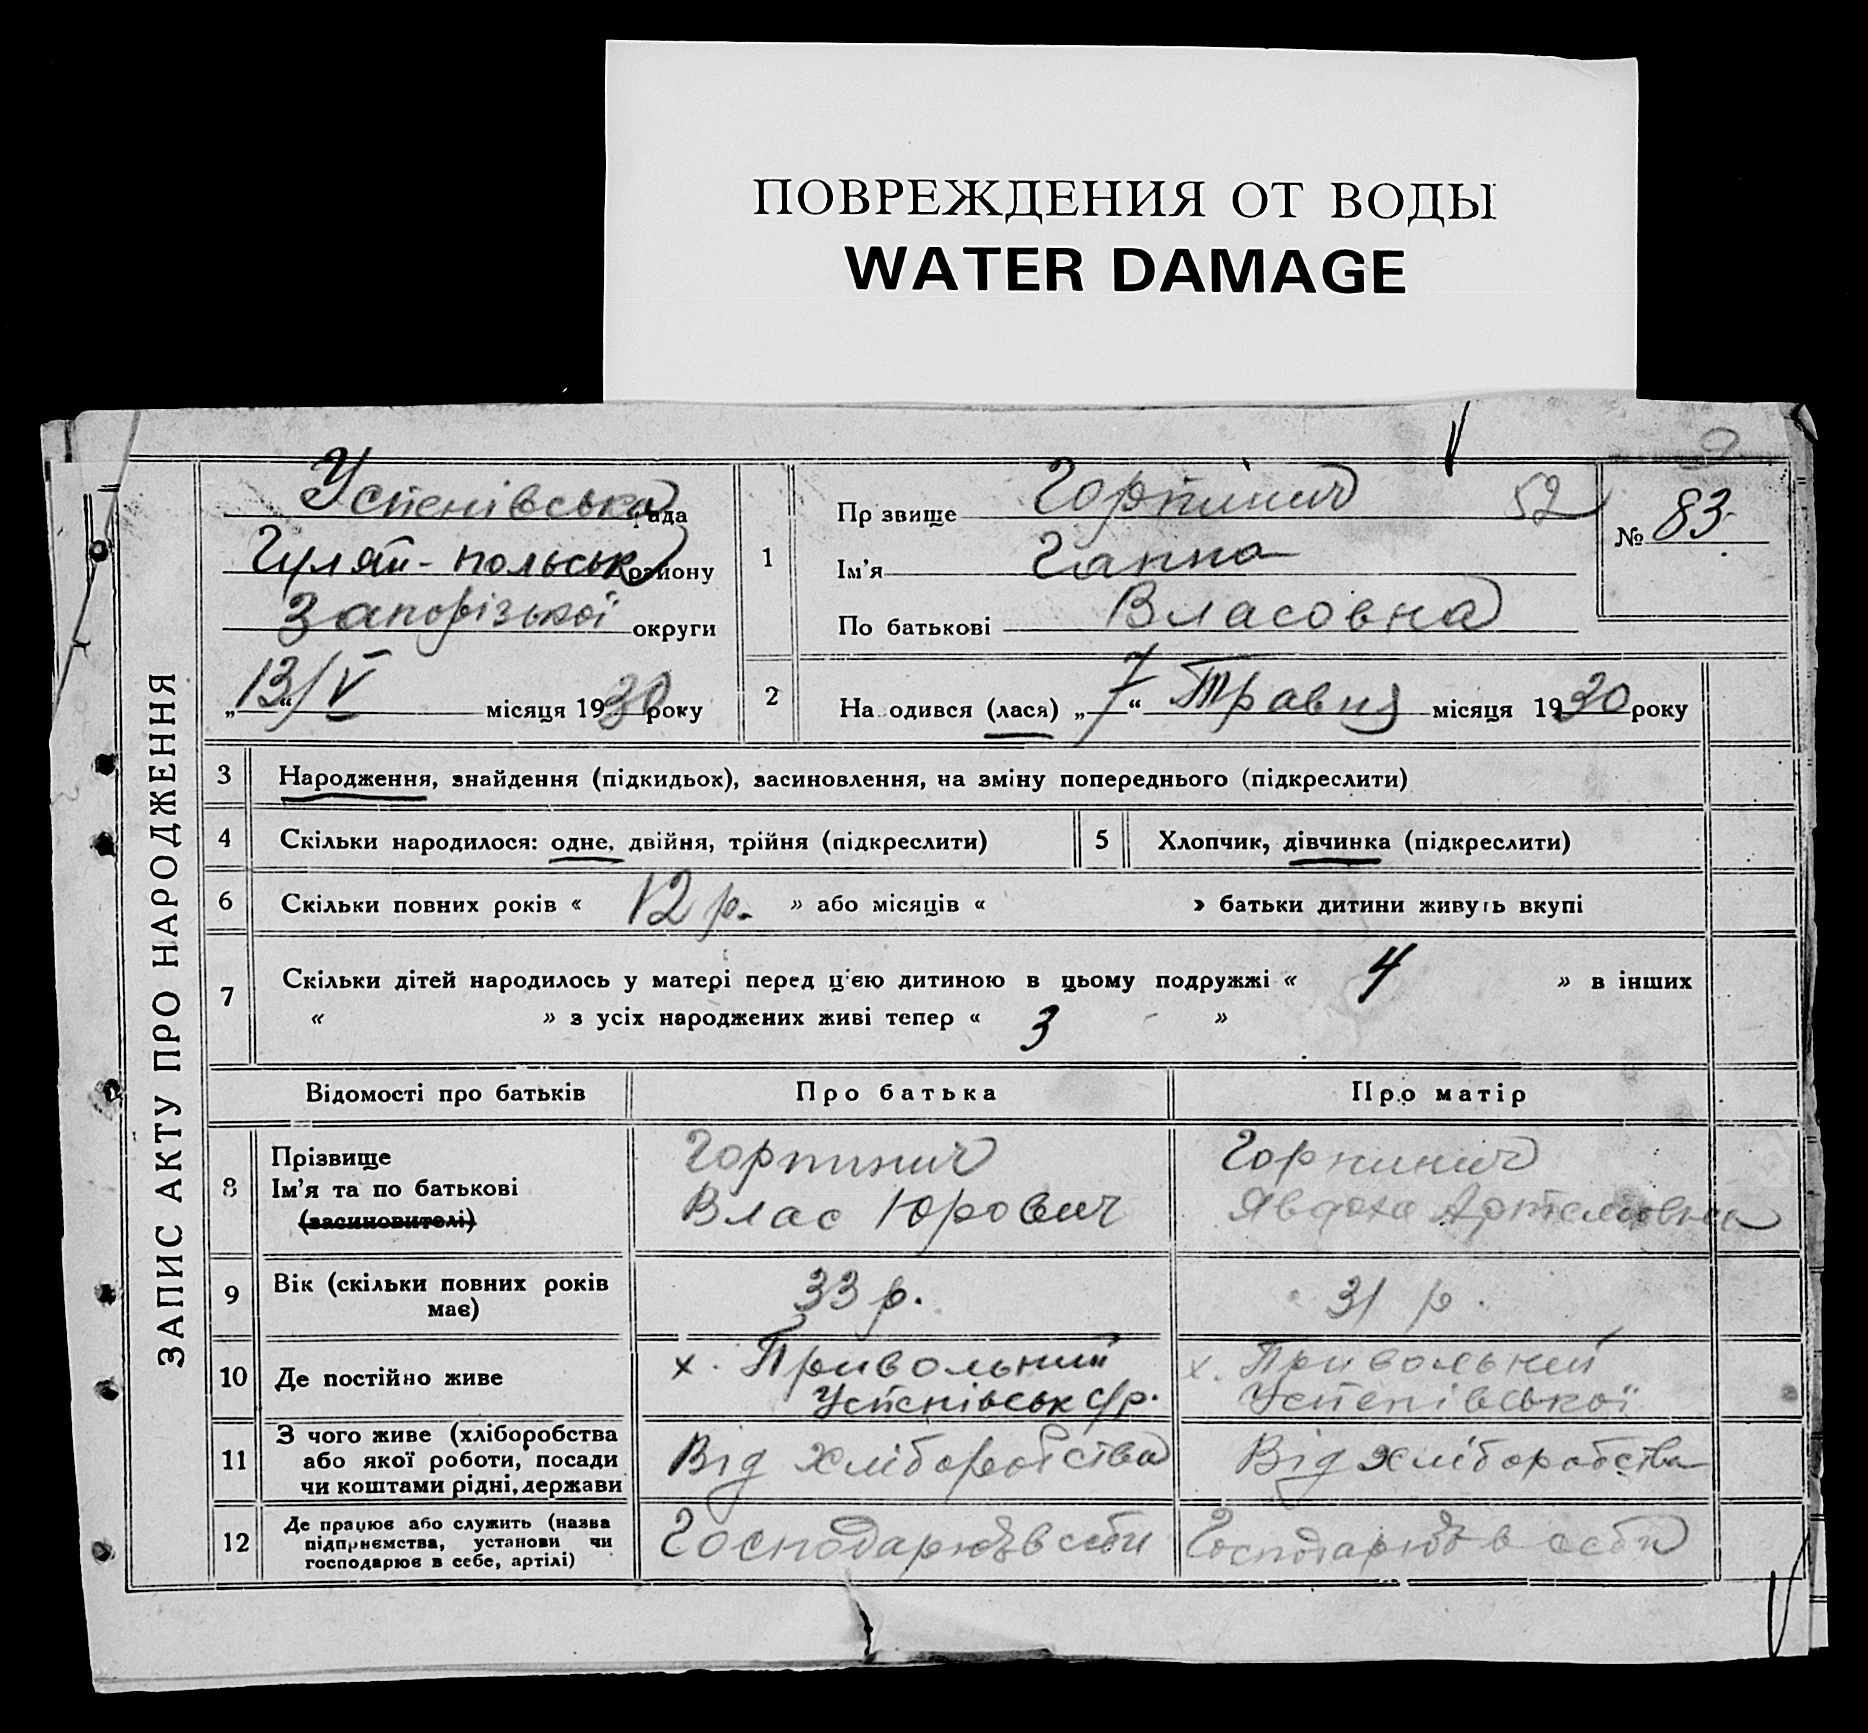 ПОВРЕЖДЕНИЯ ОТ ВОДЫ
WATER DAMAGE
ЗАПИС АКТУ ПРО НАРОДЖЕННЯ
Успенівська рада
Гуляй-польськ району
Запорізької округи
„13/V“ місяця 1930 року
1
Пр звище Горпинич 52
Ім'я Ганна
По батькові Власовна
№ 83.
2 На одився (лася) „7“ Травня місяця 1930 року
3 Народження, знайдення (підкидьок), засиновлення, на зміну попереднього (підкреслити)
4 Скільки народилося: одне, двійня, трійня (підкреслити) 5 Хлопчик, дівчинка (підкреслити)
6 Скільки повних років « 12 р. » або місяців « » батьки дитини живуть вкупі
7 Скільки дітей народилось у матері перед ц'єю дитиною в цьому подружжі « 4 » в інших
« » з усіх народжених живі тепер « 3 »
Відомості про батьків Про батька Про матір
8 Прізвище Горпинич Горпинич
Ім'я та по батькові Влас Юрович Явдоха Артемовна
(засиновителі)
9 Вік (скільки повних років має) 33 р. 31 р.
10 Де постійно живе х. Привольний х. Привольний
Успенівськ с/р. Успенівської
11 З чого живе (хліборобства
або якої роботи, посади Від хліборобства Від хліборобства
чи коштами рідні, держави
12 Де працює або служить (назва
підприємства, установи чи Господарюють в себи Господарюють в себи
господарює в себе, артілі)